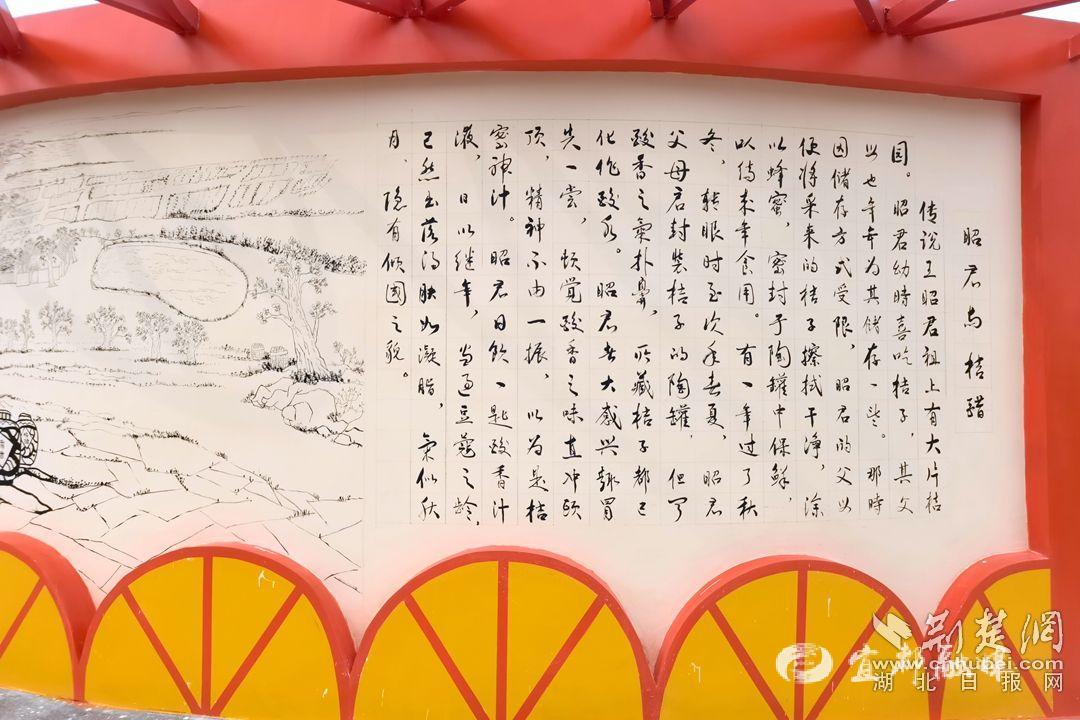 昭君与桔醋
传说王昭君祖上有大片桔
园。昭君幼時喜吃桔子，其父
以也年年为其储存一些。那時
因储存方式受限，昭君的父以
便将采来的桔子擦拭干净，涂
以蜂蜜，密封于陶罐中保鲜，
以待来年食用。有一年过了秋
冬，转眼时至次年春夏，昭君
父母启封装桔子的陶罐，但闻
酸香之氣扑鼻，所藏桔子都已
化作酸水。昭君大感兴趣冒
失一尝，顿觉酸香之味直冲颐
顶，精神不由一振，以为是桔
密神汁。昭君日饮一匙酸香汁
液，日以继年，当适豆蔻之龄，
已然出落得肤如凝脂，氣似秋
月，隐有倾國之貌。
荆楚網
www.cnhubei.com
湖北日报网
宜都融媒